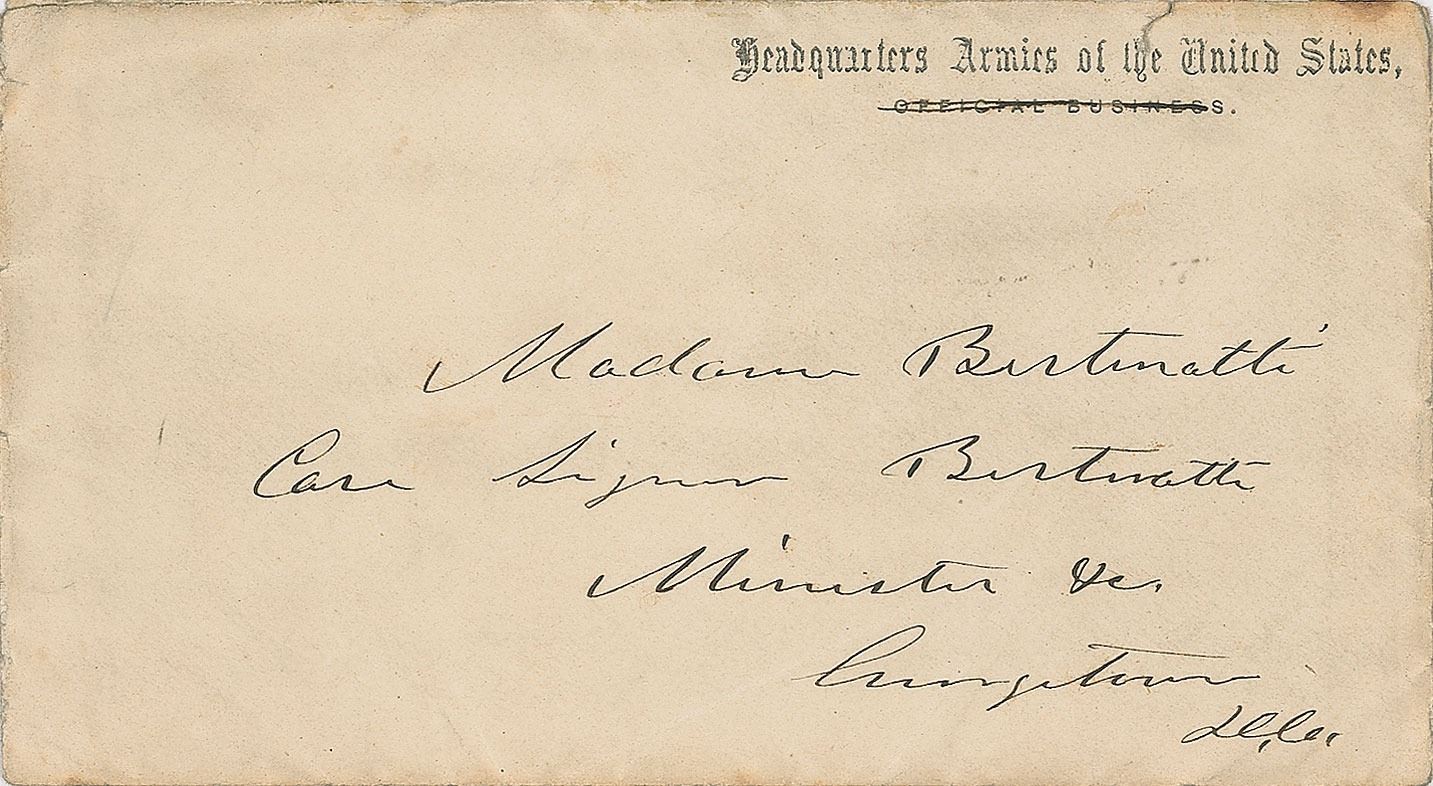 Headquarters Armies of the United States,
OFFICIAL BUSINESS.
Madame Bertinatti
Care Signor Bertinatti
Minister &c.
Georgetown
D.C.